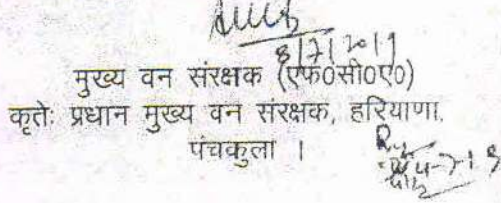 8/7/2019
मुख्य वन संरक्षक (एफ0सी0ए0)
कृतेः प्रधान मुख्य वन संरक्षक, हरियाणा,
पंचकुला ।